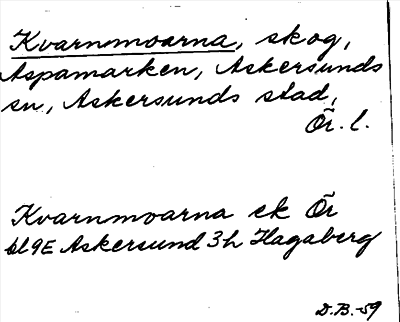 Kvarnmoarna, skog,
Aspamarken, Askersunds
sn, Askersunds stad,
Ör. l.
Kvarnmoarna ek Ör
bl 9E Askersund 3h Hagaberg
D.B.-59